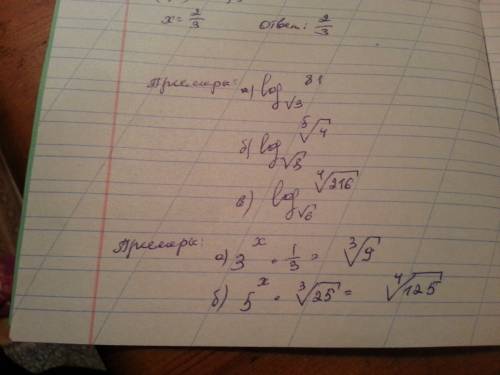 x = 2/3 Ответ: 2/3
Примеры: а) log_√3 81
б) log_√8 ⁵√4
в) log_√6 ⁴√216
Примеры: а) 3^x · 1/3 = ³√9
б) 5^x · ³√25 = ⁴√125